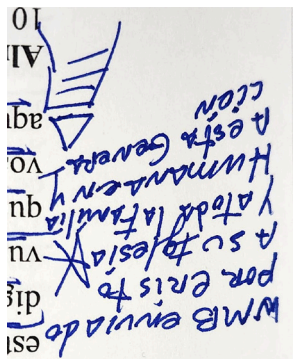 WMB enviado
por cristo
A su Iglesia
Y a toda la familia
Humana en y
A esta Genera
cion
est
dig
vu
qu
vo
aqu
Al
10